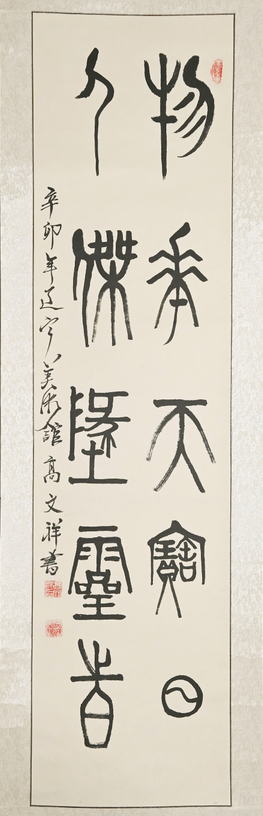 物華天寶日
人傑地靈時
辛卯年辽宁美術館高文祥書